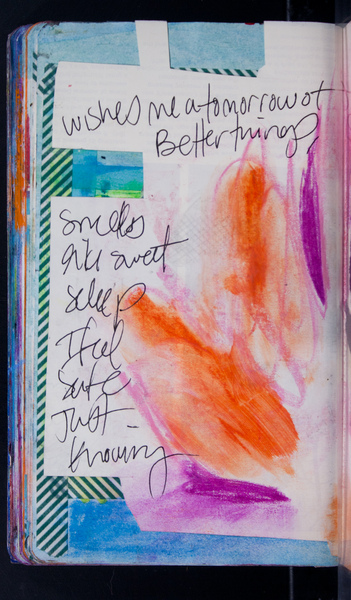 wishes me a tomorrow of
Better things
smells
like sweet
sleep
I feel
safe
Just
knowing